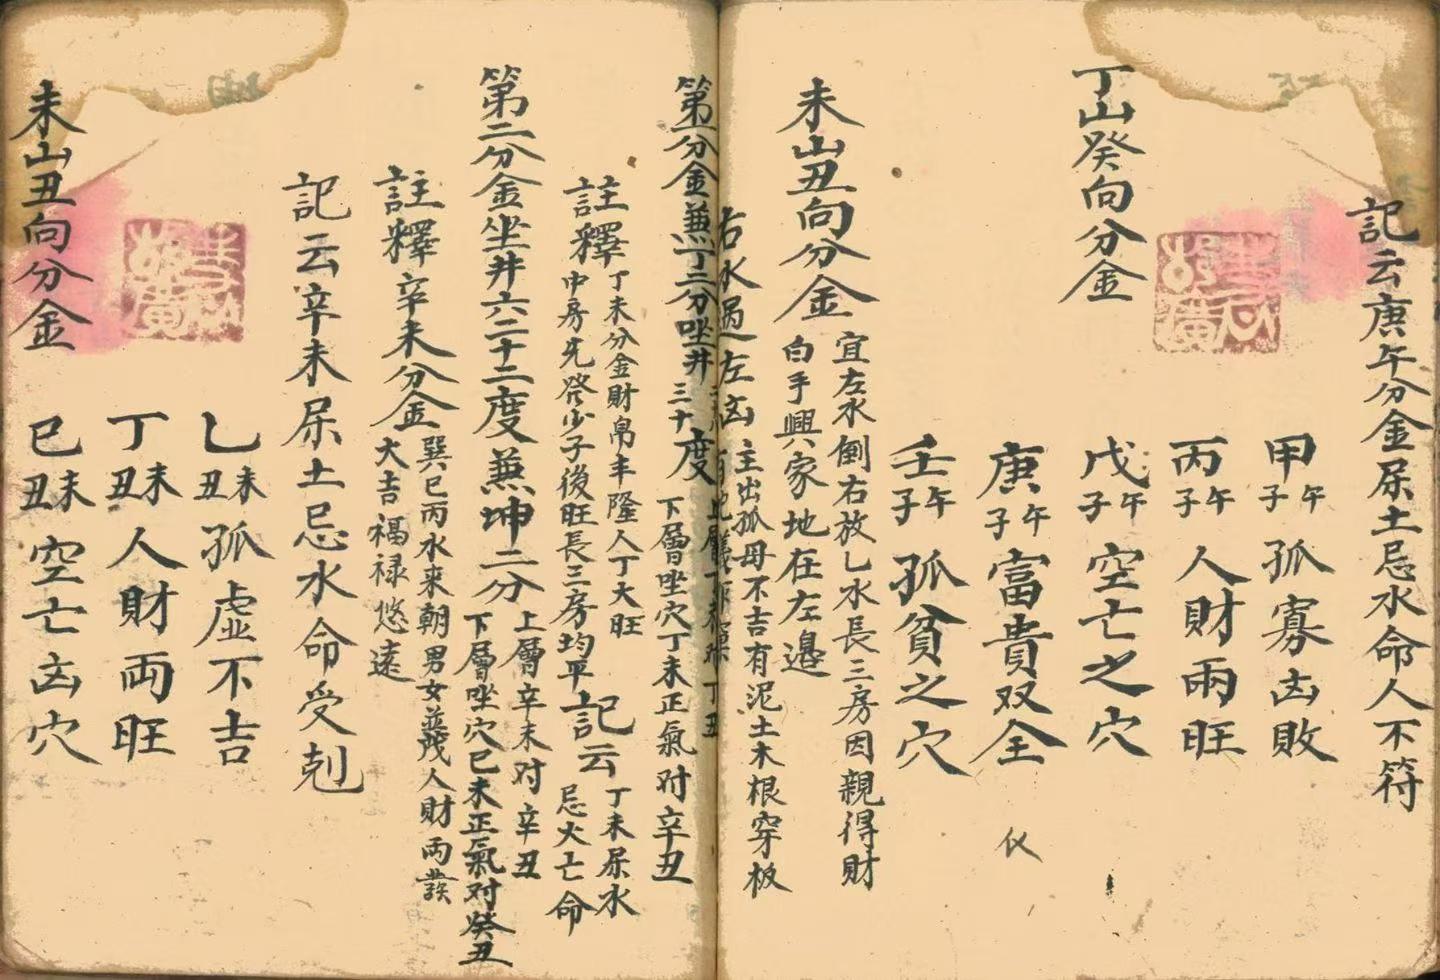 記云庚午分金屎土忌水命人不符
丁山癸向分金
甲午子孤寡凶敗
丙午子人財兩旺
戊午子空亡之穴
庚午子富貴双全
壬午子孤貧之穴
未山丑向分金
宜左水倒右放乙水長三房因親得財
白手興家地在左邊
右水過左凶
主出孤母不吉有泥土木根穿板
第一分金兼丁二分坐井三十度
上層丁未 丁丑
下層坐穴丁未正氣对辛丑
註釋
丁未分金財帛丰隆人丁大旺
中房先發少子後旺長三房均平
記云
丁未屎水
忌火亡命
第二分金坐井六二十二度兼坤二分
上層辛未对辛丑
下層坐穴巳未正氣对癸丑
註釋辛未分金
巽巳丙水来朝男女並茂人財両發
大吉福禄悠遠
記云辛未屎土忌水命受剋
未山丑向分金
乙未丑孤虚不吉
丁未丑人財両旺
巳未丑空亡凶穴